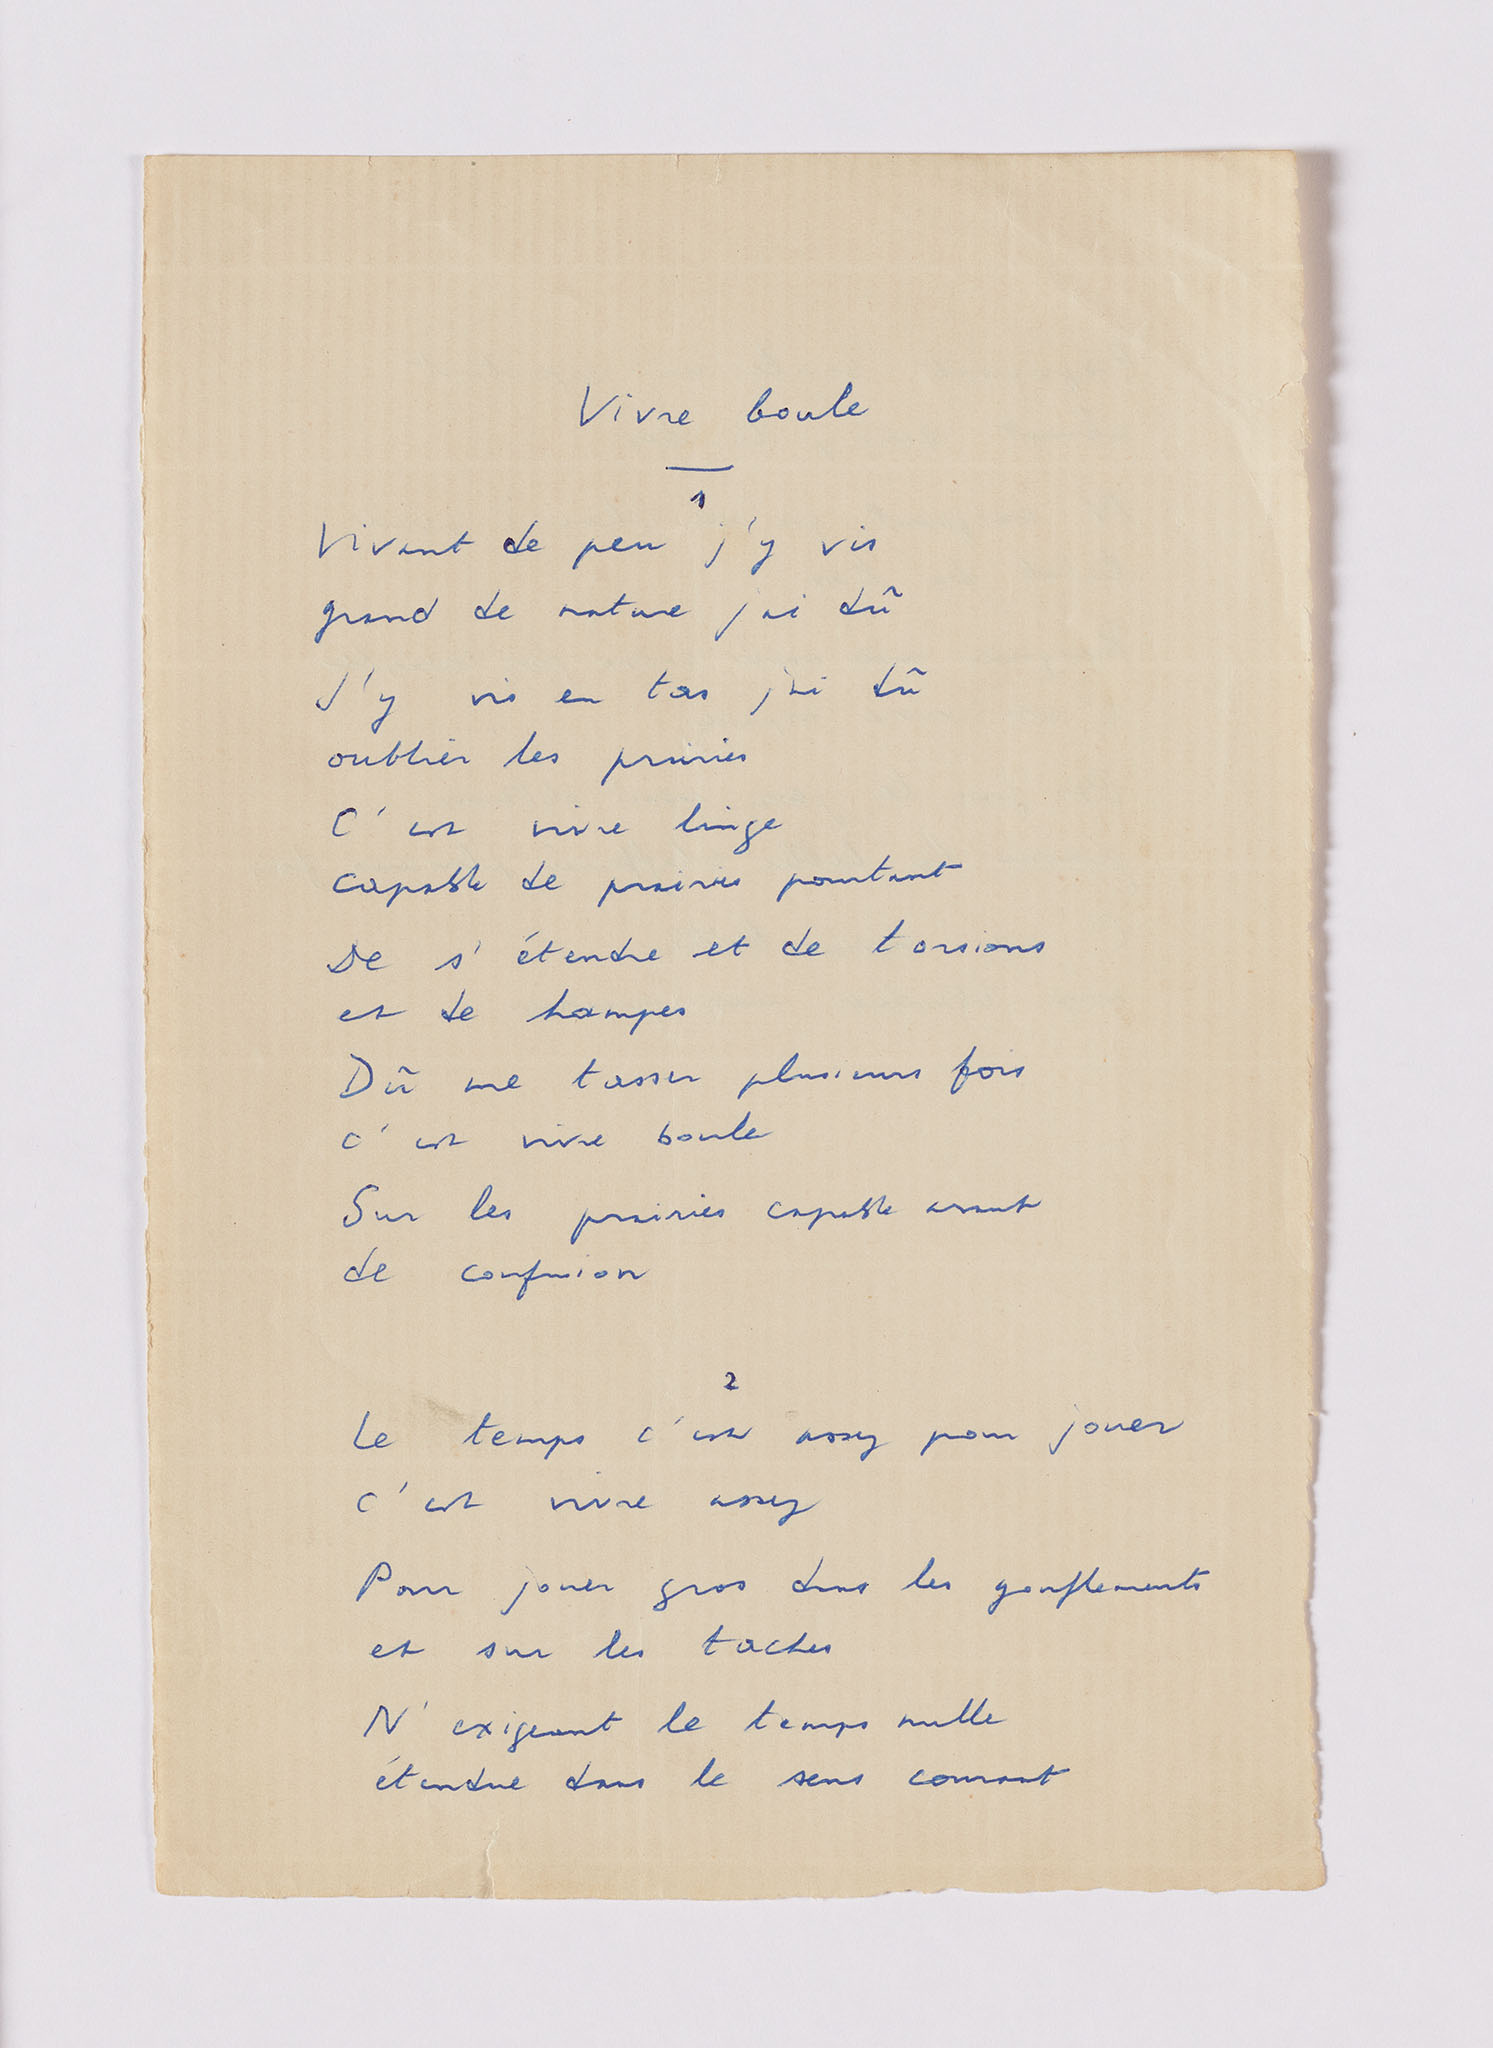 Vivre boule
1
Vivant de peu j'y vis
grand de nature j'ai dû
J'y vis en tas j'ai dû
oublier les prairies
C'est vivre linge
capable de prairies pourtant
De s'étendre et de torsions
et de hampes
Dû me tasser plusieurs fois
c'est vivre boule
Sur les prairies capable avant
de confusion
2
Le temps c'est assez pour jouer
c'est vivre assez
Pour jouer gros dans les gonflements
et sur les taches
N'exigeant le temps nulle
étendue dans le sens courant